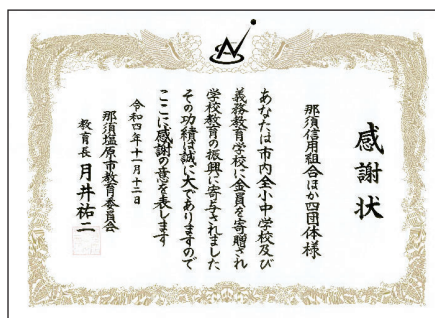 感謝状
那須信用組合ほか四団体様
あなたは市内全小中学校及び
義務教育学校に金員を寄贈され
学校教育の振興に寄与されました
その功績は誠に大でありますので
ここに感謝の意を表します
令和四年十一月十二日
那須塩原市教育委員会
教育長 月井祐二